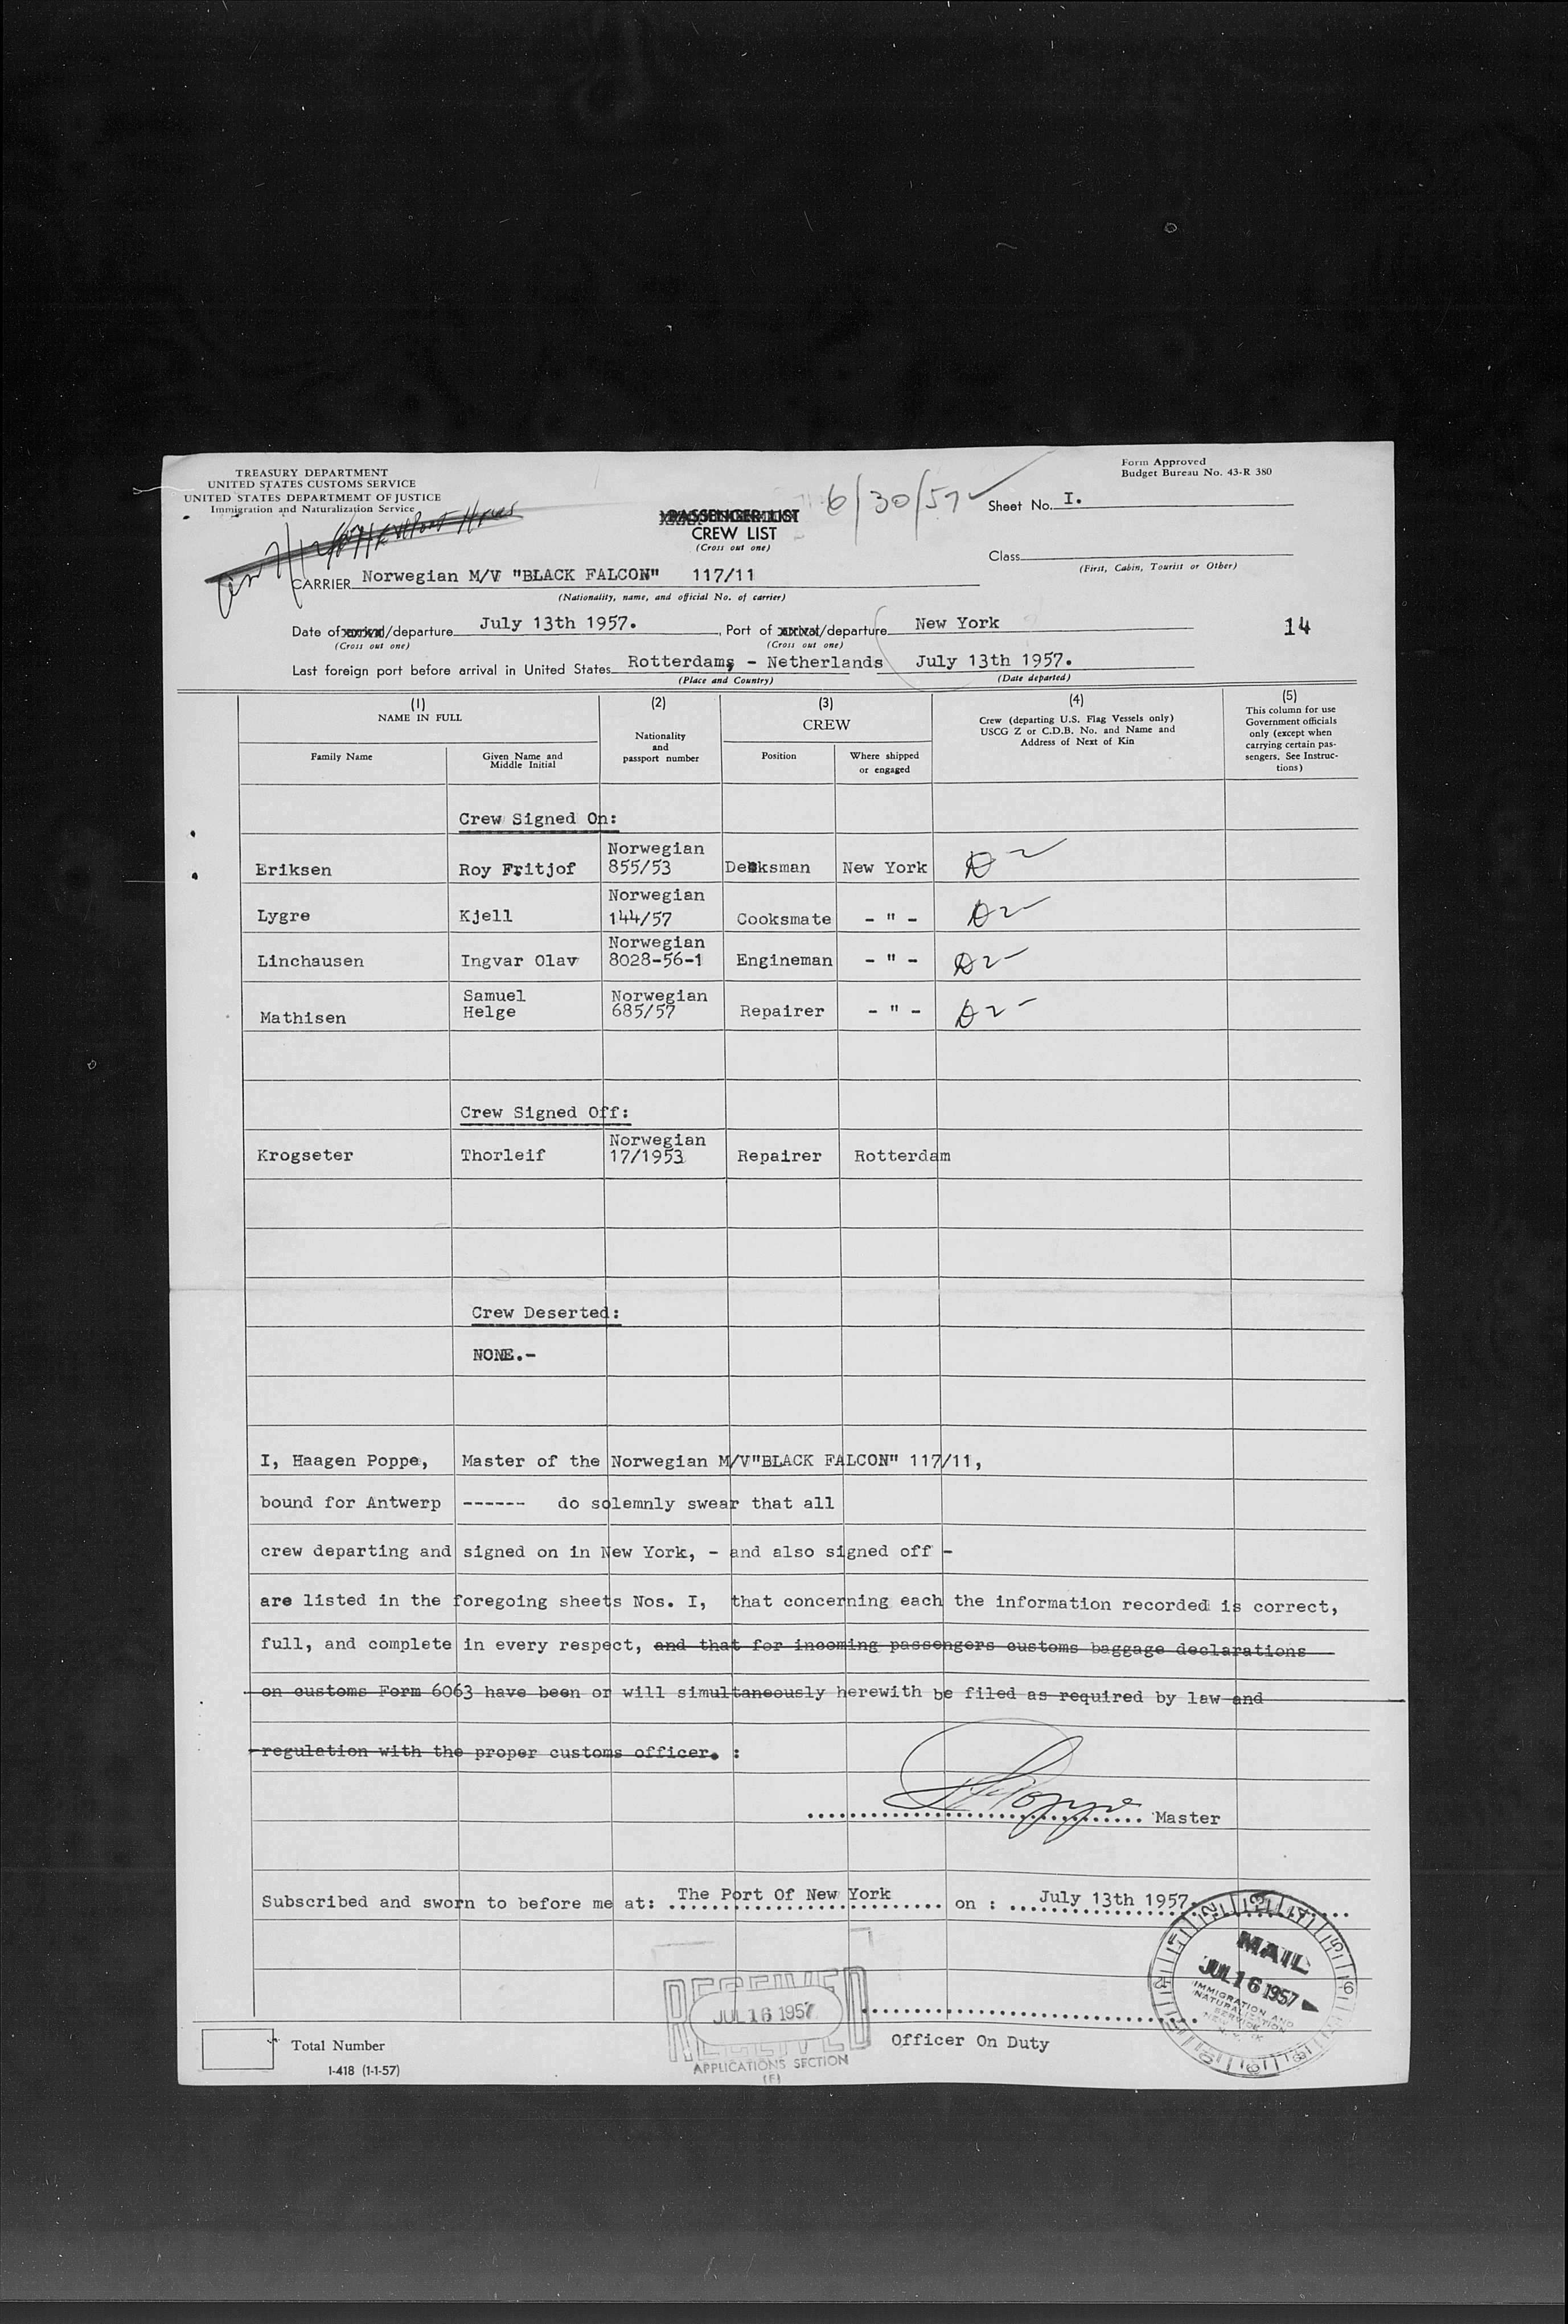 TREASURY DEPARTMENT
UNITED STATES CUSTOMS SERVICE
UNITED STATES DEPARTMEMT OF JUSTICE
Immigration and Naturalization Service
Form Approved
Budget Bureau No. 43-R 380
6/30/57
Sheet No. I.
PASSENGER LIST
CREW LIST
(Cross out one)
Class
(First, Cabin, Tourist or Other)
CARRIER Norwegian M/V "BLACK FALCON" 117/11
(Nationality, name, and official No. of carrier)
Date of arrival/departure July 13th 1957. , Port of arrival/departure New York
(Cross out one) (Cross out one)
14
Last foreign port before arrival in United States Rotterdam, - Netherlands July 13th 1957.
(Place and Country) (Date departed)
(1) (2) (3) (4) (5)
NAME IN FULL
Nationality and passport number
CREW
Crew (departing U.S. Flag Vessels only)
USCG Z or C.D.B. No. and Name and
Address of Next of Kin
This column for use
Government officials
only (except when
carrying certain pas-
sengers. See Instruc-
tions)
Family Name Given Name and Middle Initial Position Where shipped or engaged
Crew Signed On:
Eriksen Roy Fritjof Norwegian 855/53 Decksman New York D2
Lygre Kjell Norwegian 144/57 Cooksmate - " - D2
Linchausen Ingvar Olav Norwegian 8028-56-1 Engineman - " - D2
Mathisen Samuel Helge Norwegian 685/57 Repairer - " - D2
Crew Signed Off:
Krogseter Thorleif Norwegian 17/1953 Repairer Rotterdam
Crew Deserted:
NONE.-
I, Haagen Poppe, Master of the Norwegian M/V"BLACK FALCON" 117/11,
bound for Antwerp ------ do solemnly swear that all
crew departing and signed on in New York, - and also signed off -
are listed in the foregoing sheets Nos. I, that concerning each the information recorded is correct,
full, and complete in every respect, and that for incoming passengers customs baggage declarations
on customs Form 6063 have been or will simultaneously herewith be filed as required by law and
regulation with the proper customs officer. :
Master
Subscribed and sworn to before me at: The Port Of New York on : July 13th 1957.
MAIL
JUL 16 1957
IMMIGRATION AND
NATURALIZATION
SERVICE
RECEIVED
JUL 16 1957
APPLICATIONS SECTION
(F)
Officer On Duty
Total Number
I-418 (1-1-57)